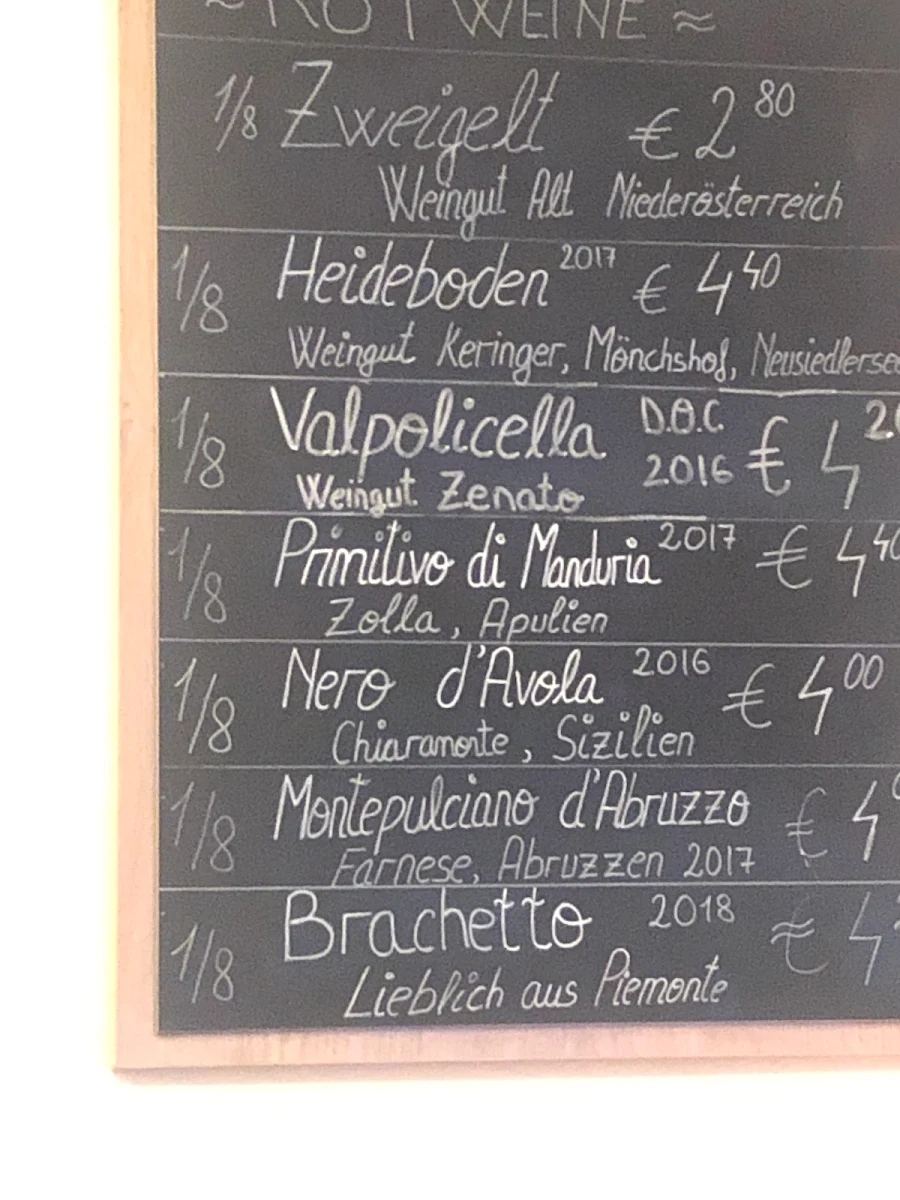 ≈ ROTWEINE ≈
1/8 Zweigelt € 2 80
Weingut Alt Niederösterreich
1/8 Heideboden 2017 € 4 40
Weingut Keringer, Mönchshof, Neusiedlersee
1/8 Valpolicella D.O.C. 2016 € 4 20
Weingut Zenato
1/8 Primitivo di Manduria 2017 € 4 40
Zolla, Apulien
1/8 Nero d'Avola 2016 € 4 00
Chiaramonte, Sizilien
1/8 Montepulciano d'Abruzzo € 4
Farnese, Abruzzen 2017
1/8 Brachetto 2018 € 4
Lieblich aus Piemonte